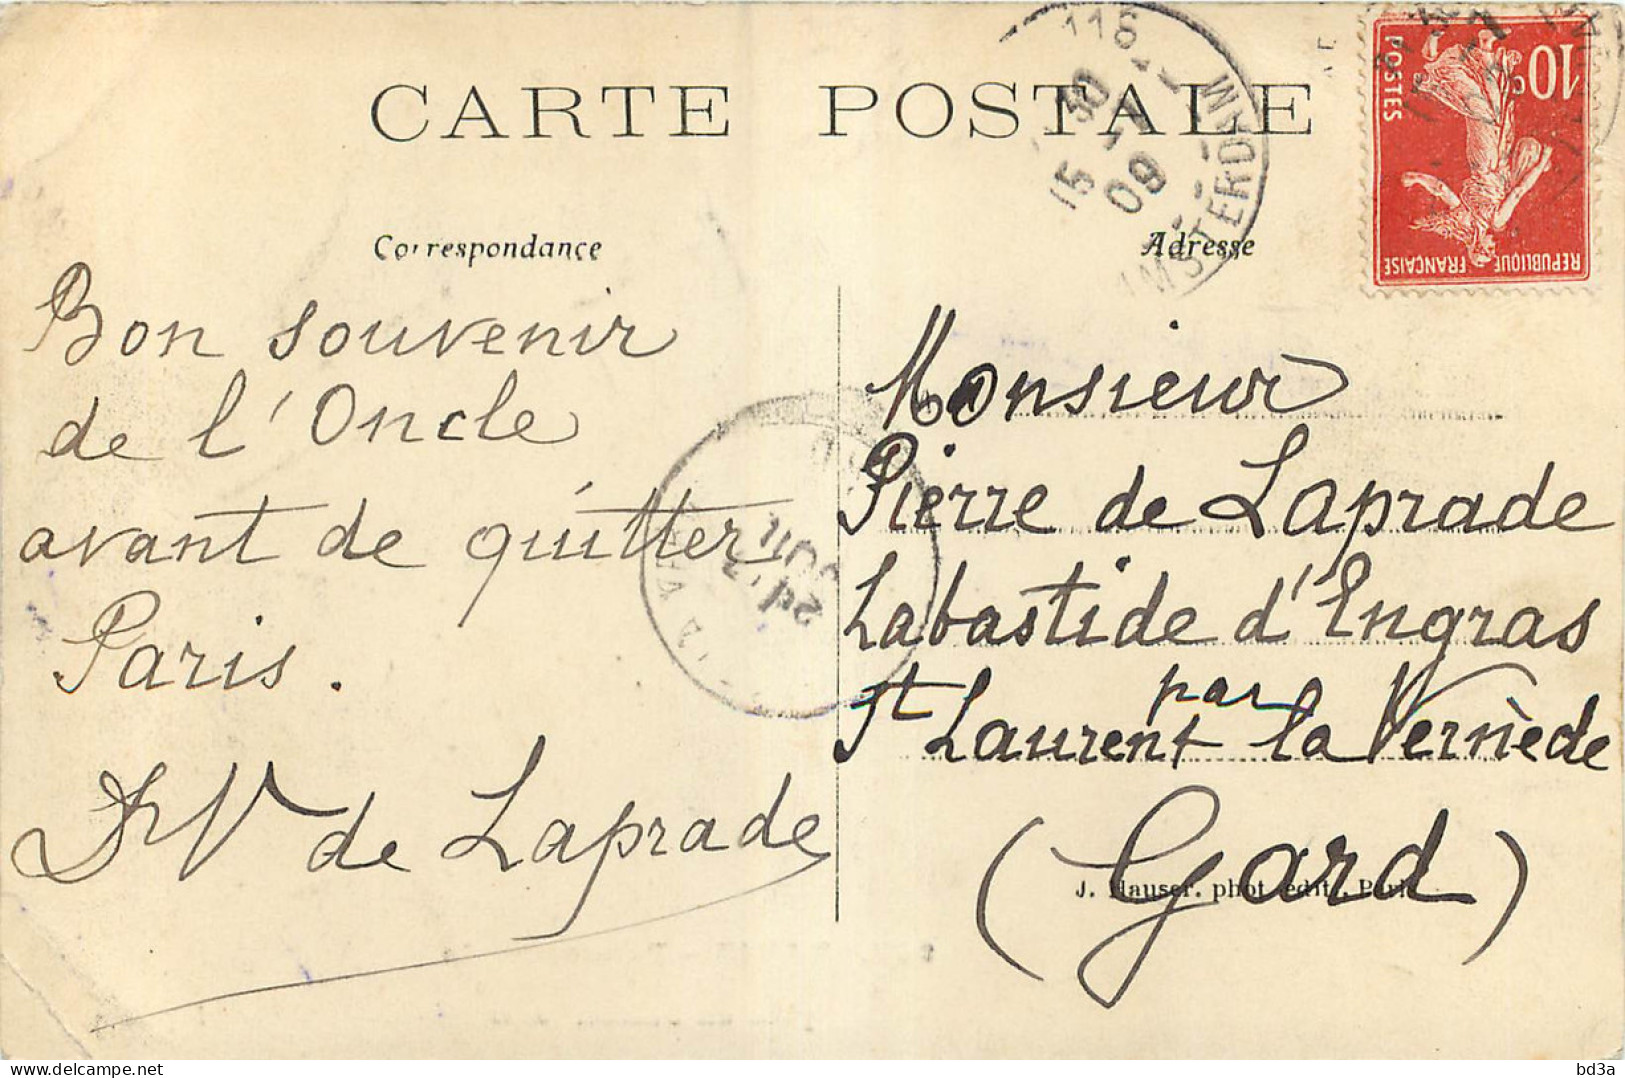 CARTE POSTALE
Correspondance
Adresse
10c
POSTES
REPUBLIQUE FRANÇAISE
118
15 - 7
09
AMSTERDAM
Bon souvenir
de l'Oncle
avant de quitter
Paris.
Dr V de Laprade
Monsieur
Pierre de Laprade
Labastide d'Engras
par
St Laurent la Vernède
(Gard)
J. Hauser, phot. édit., Paris
delcampe.net
bd3a